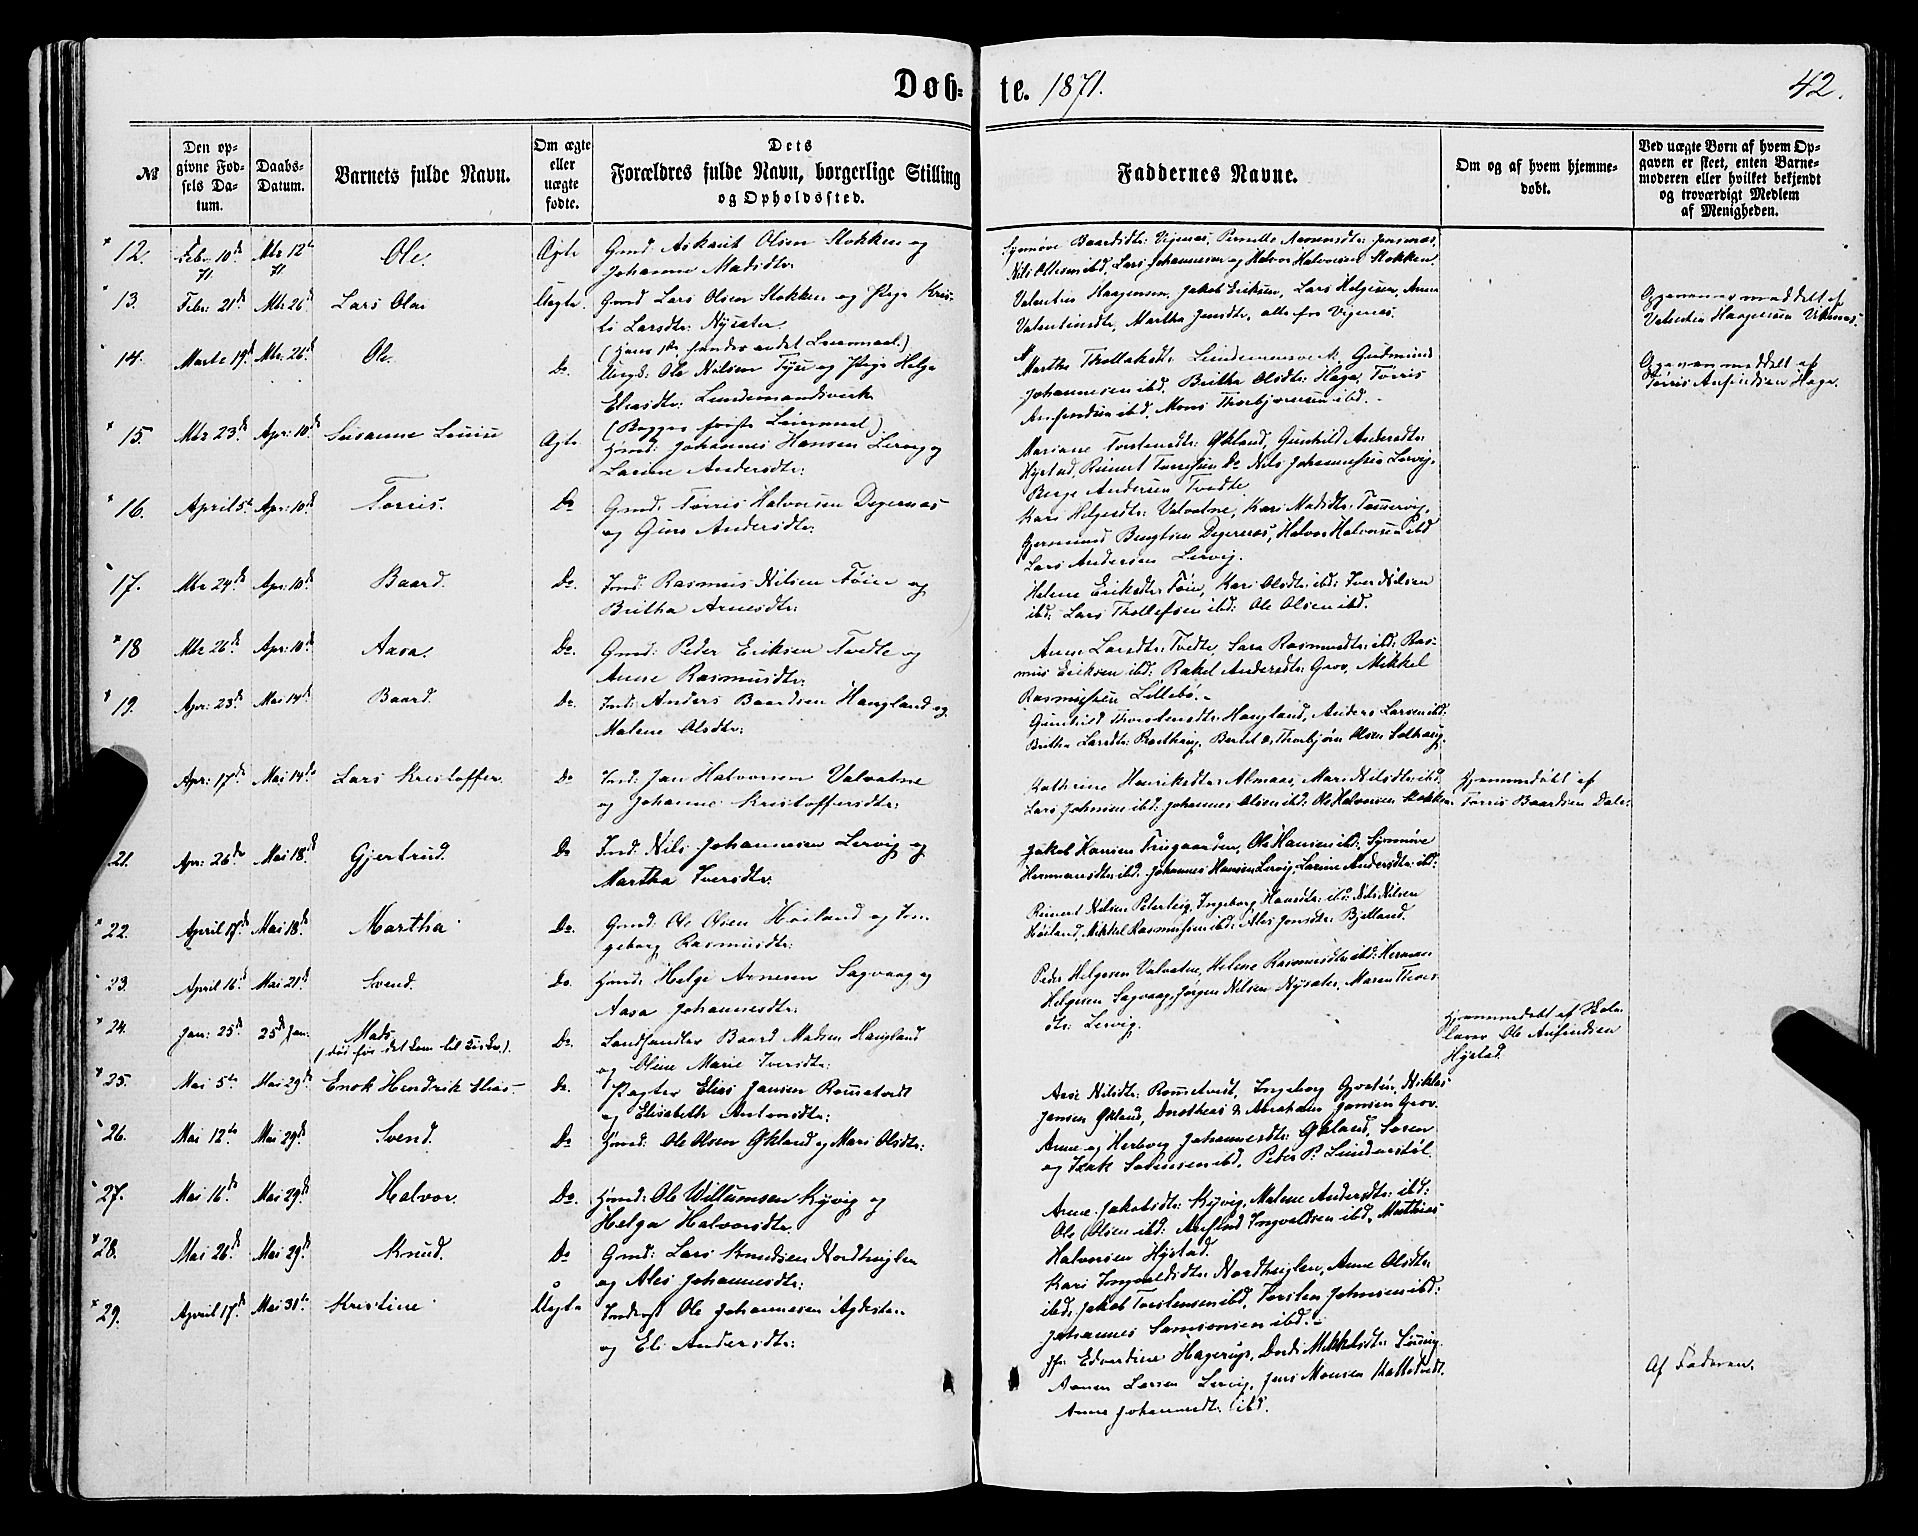 Døb-
te. 1871.
42.
№
Den op-
givne Fød-
sels Da-
tum.
Daabs-
Datum.
Barnets fulde Navn.
Om ægte
eller
uægte
fødte.
Dets
Forældres fulde Navn, borgerlige Stilling
og Opholdssted.
Faddernes Navne.
Om og af hvem hjemme-
døbt.
Ved uægte Børn af hvem Op-
gaven er skeet, enten Barne-
moderen eller hvilket bekjendt
og troværdigt Medlem
af Menigheden.
12. Febr 10de 71. Mts 12te 71 Ole. Ægte Gmd: Olsen Stokken og
Johanne Madsdtr:
Synnøve Baardsdtr: Vigenæs, Pernille Jensnæs,
Nils Ottesen ibd, Lars Johannesen og Halvor Halvorsen Stokken.
13. Febr: 21de Mts 26de Lars Olai Uægte. Gmd Lars Olsen Stokken og Pige Kris-
ti Larsdtr: Nysæter.
(Hans 1ste hendes andet Leiermaal.)
Valentin Haagensen, Jakob Eriksen, Lars Helgesen, Anne
Valentinsdtr, Martha Jensdtr, alle fra Vigenæs.
Opgaven er meddelt af
Valentin Haagensen Vikenæs.
14. Marts 19de Mts: 26de Ole. Do. Ungk: Ole Nilsen Tyse og Pige Helga
Eliasdtr: Lundemandsverk
(Begges første Leiermaal)
Martha Thollaksdtr: Lundemannsverk, Gudmund
Johannesen ibd. Britha Olsdtr: Haga, Tørris
Anfindsen ibd, Mons Thorbjørnsen ibd.
Opgaven meddelt af
Tørris Anfindsen Haga.
15. Mts 23de Apr: 10de Susanne Louise Ægte Hmd: Johannes Hansen Lervig og
Larine Andersdtr:
Marianne Torstensdtr: Økland, Gunhild Andersdtr:
Hystad, Reinert Do Nils Johannessen Lervig,
Berge Andersen Tvedte
16. April 5te Apr: 10de Torris. Do Gmd: Tørris Halvorsen Digernæs
og Guro Andersdtr:
Kari Helgesdtr: Valvatne, Kari Madsdtr:
Gjermund Bengtsen Digernæs, Halvor Halvorsen ibd
Lars Andersen Lervig.
17. Mts 24de Apr: 10de Baard. Do. Inds: Rasmus Nilsen Føien og
Britha Arnesdtr:
Helene Eriksdtr: Føien, Kari Olsdtr: ibd: Iver Nilsen
ibd: Lars Thollefsen ibd: Ole Olsen ibd.
18 Mts 26de Apr: 10de Aasa. Do. Gmd: Peder Eriksen Tvedte og
Anne Rasmusdtr:
Anne Larsdtr: Tvedte, Sara Rasmusdtr: ibd: Ras-
mus Eriksen ibd: Rakel Andersdtr: Grov, Mikkel
Rasmussen Lillebø.
19. Apr: 23de Mai 14de Baard. Do. Inds: Anders Baardsen Haugland og
Malene Olsdtr:
Gunhild Thorstensdtr: Haugland, Anders Larsen ibd:
Britha Larsdtr: Bertel & Thorbjørn Olsen Solhaug.
Apr: 17de Mai 14de Lars Kristoffer. Do Inds: Jan Halvorsen Valvatne
og Johanne Kristoffersdtr:
Kathrine Henriksdtr: Almaas, Mari Nilsdtr: ibd:
Lars Johnsen ibd: Johannes Olsen ibd: Ole Halvorsen Stokken.
Hjemmedøbt af
Tørris Baardsen Dale.
21. Apr: 26de Mai 18de Gjertrud. Do Inds: Nils Johannesen Lervig og
Martha Iversdtr:
Jakob Hansen Frugaarden, Ole Hansen ibd: Synnøve
Hermansdtr: ibd: Johannes Hansen Lervig, Larine Andersdtr: ibd:
22. April 17de Mai 18de Martha Do. Gmd: Ole Olsen Høiland og In-
geborg Rasmusdtr:
Reinert Nilsen Peterteig, Ingeborg Hansdtr: ibd: Nils Nilsen
Høiland, Mikkel Rasmussen ibd: Ales Jonsdtr: Bjelland.
23. April 16de Mai 21de Svend. Do. Hmd: Helge Arnesen Sagvaag og
Aasa Johannesdtr:
Peder Helgesen Valvatne, Helene Rasmusdtr: ibd: Herman
Helgesen Sagvaag, Jørgen Nilsen Nysæter, Maren
dtr: Lervig.
24. Jan: 25de 25de Jan: Mads.
(død før det kom til Kirke.)
Do. Landhandler Baard Madsen Haugland
og Oline Marie Iversdtr:
Hjemmedøbt af Skole-
lærer Ole Anfindsen
Hystad.
25. Mai 5te Mai 29de Enok Hendrik Elias. Do. Pagter Elias Jansen Romsetvedt
og Elisabeth Antonsdtr:
Aase Nilsdtr: Romsetvedt, Ingeborg Niklas
Jansen Økland, Dorothea & Abraham Jansen Grov.
26. Mai 12te Mai 29de Svend. Do Hmd: Ole Olsen Økland og Mari Olsdtr:
Anne og Herborg Johannesdtr: Økland, Søren
og Isak Sørensen ibd, Peder P: Lunderstøl.
27. Mai 16de Mai 29de Halvor. Do. Hmd: Ole Willumsen Kyvig og
Helga Halvorsdtr:
Anne Jakobsdtr: Kyvig, Malene Andersdtr: ibd:
Ole Olsen ibd: Anfind Ingvaldsen ibd, Mathias
Halvorsen Hystad.
28. Mai 26de Mai 29de Knud. Do Gmd: Lars Knudsen Nordhuglen
og Ales Johannesdtr:
Kari Ingvaldsdtr: Nordhuglen, Anne Olsdtr:
ibd: Jakob Torstensen ibd, Torsten Johnsen ibd:
Johannes Samsonsen ibd.
29. April 17de Mai 31te Kristine Uægte Inderst Ole Johannesen Agdesten
og Eli Andersdtr:
Edvardine Hagerup, Dordi Mikkelsdtr:
Larsen Lervig, Jens Monsen Kattetvedt,
Anna Johannesdtr: ibd.
Af Faderen.